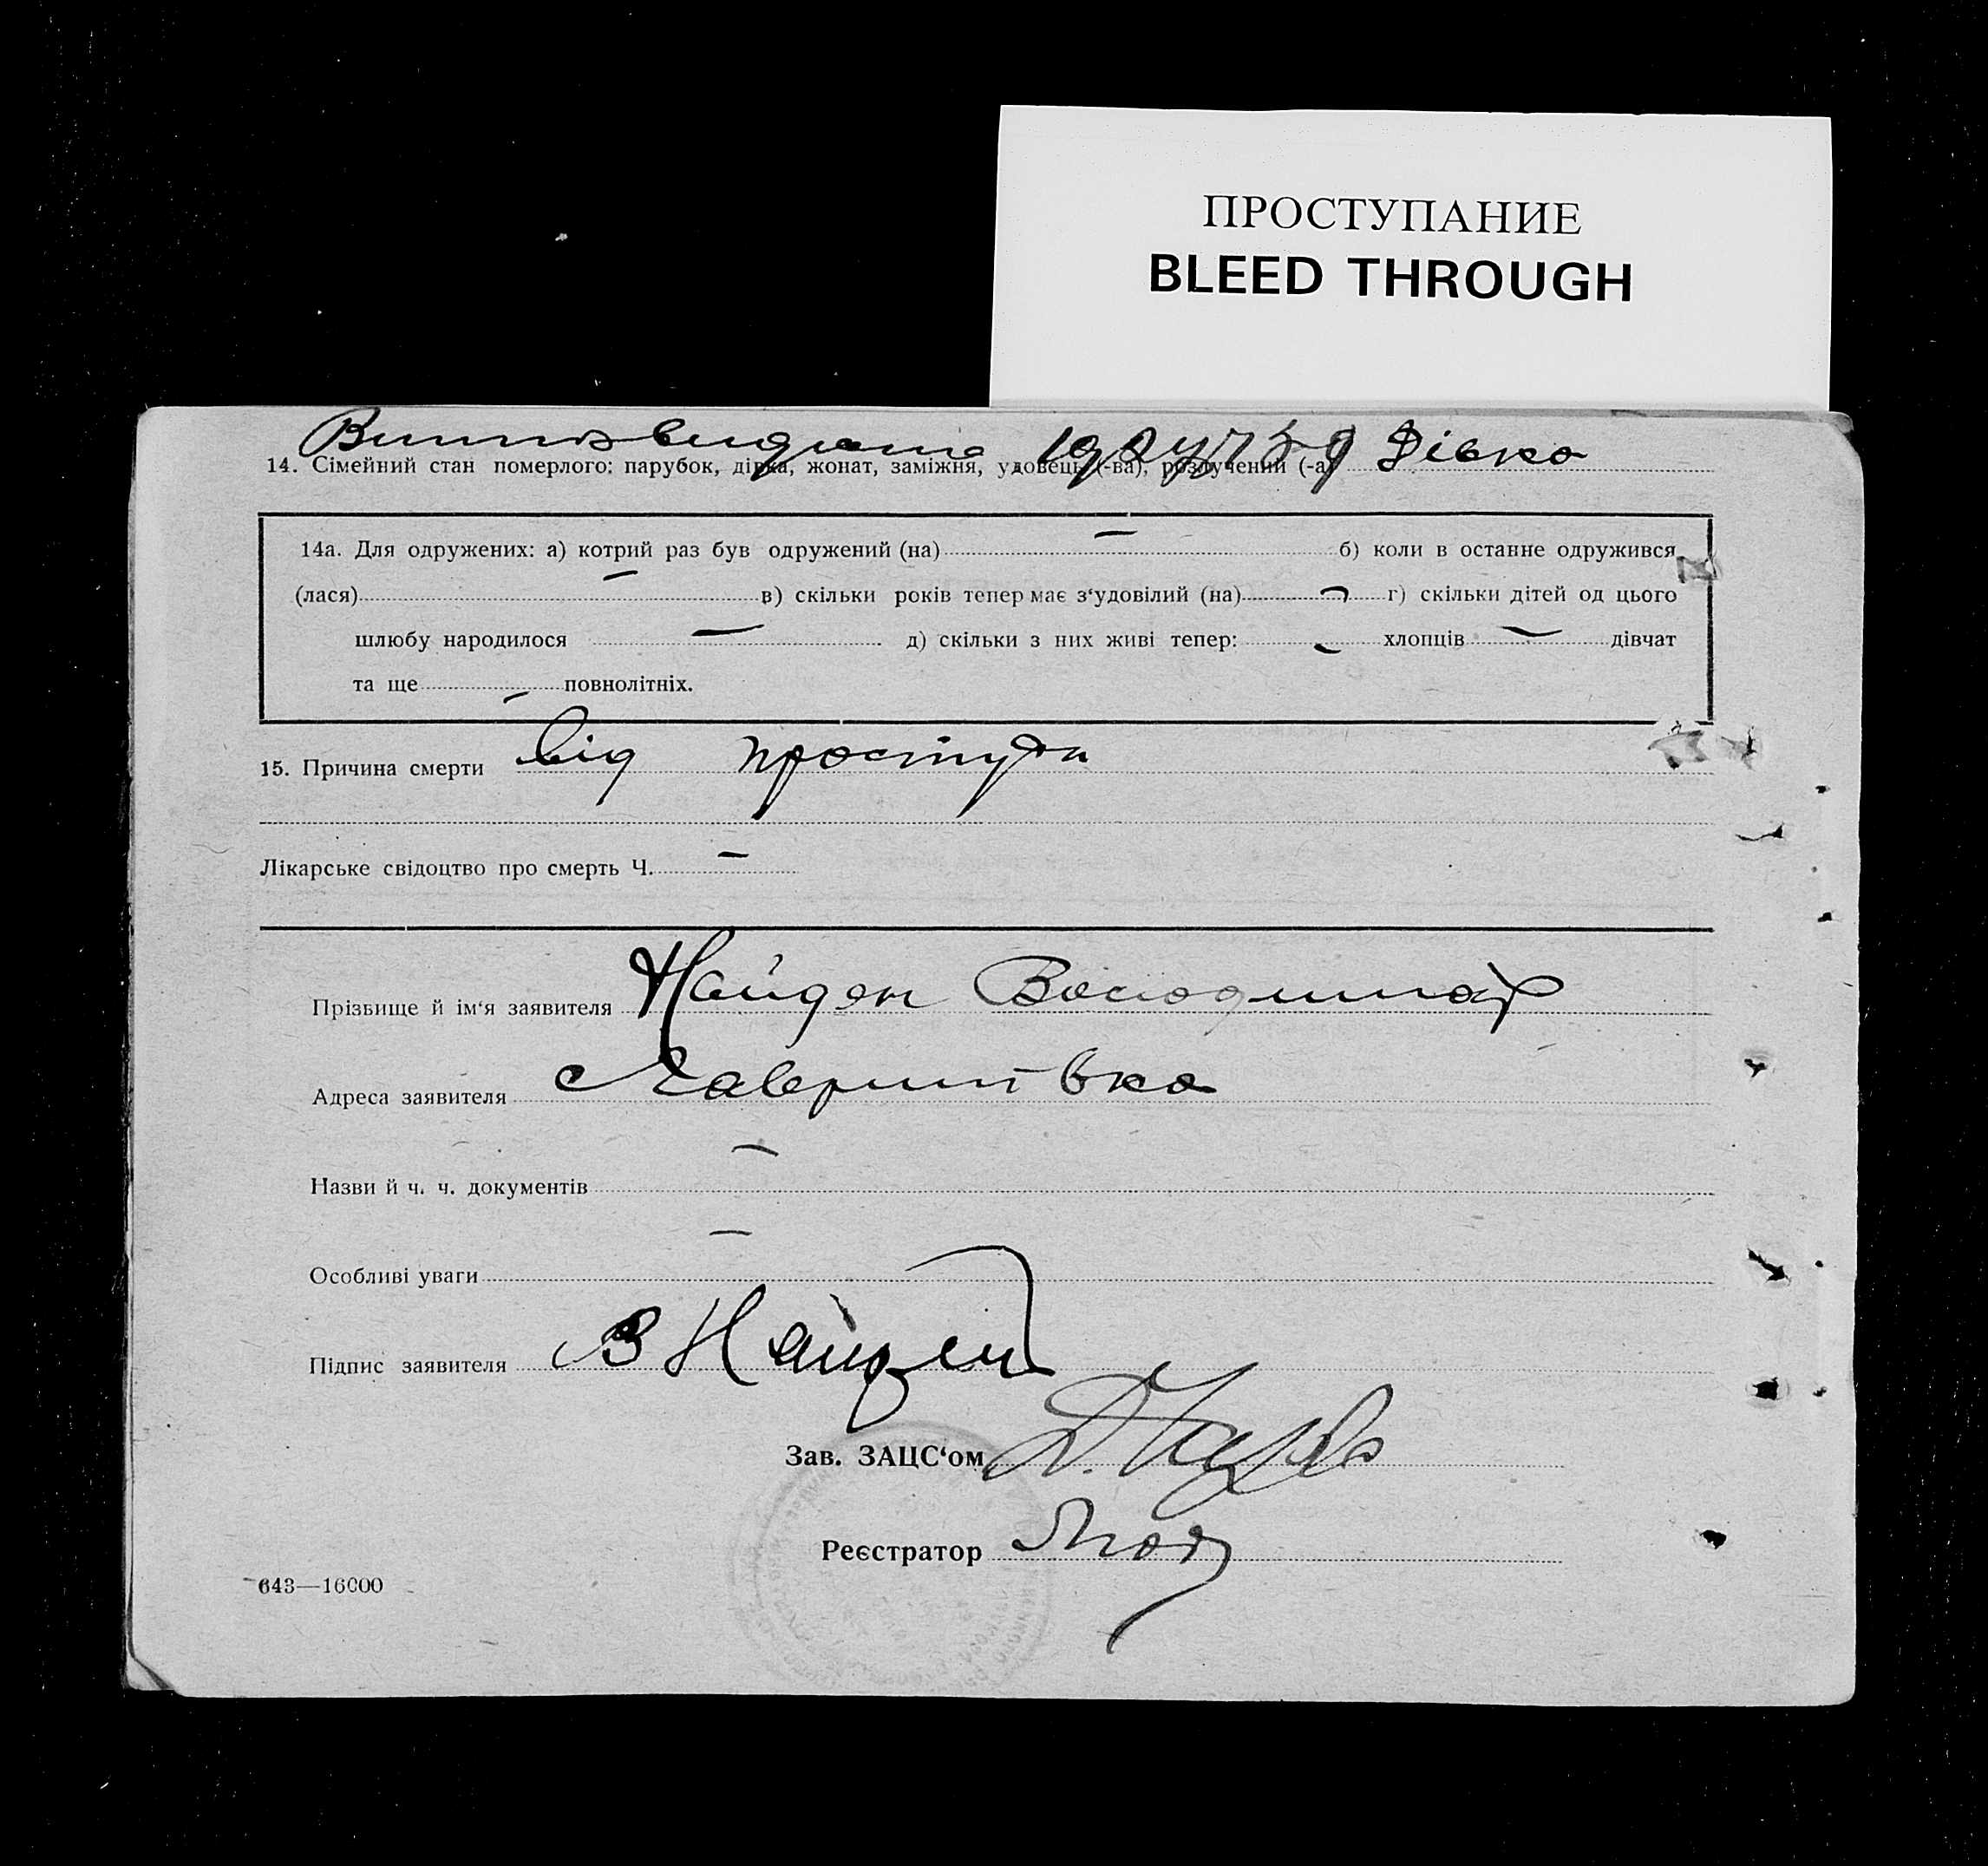 ПРОСТУПАНИЕ
BLEED THROUGH
14. Сімейний стан померлого: парубок, дівка, жонат, заміжня, удовець (-ва), розлучений (-а) Дівка
14а. Для одружених: а) котрий раз був одружений (на) — б) коли в останнє одружився
(лася) — в) скільки років тепер має з‘удовілий (на) — г) скільки дітей од цього
шлюбу народилося — д) скільки з них живі тепер: — хлопців — дівчат
та ще — повнолітніх.
15. Причина смерти від простуди
Лікарське свідоцтво про смерть Ч. —
Прізвище й ім‘я заявителя Найден Володимир
Адреса заявителя с Гаверишівка
Назви й ч. ч. документів —
Особливі уваги —
Підпис заявителя В Найден
Зав. ЗАЦС‘ом
Реєстратор
643—16000